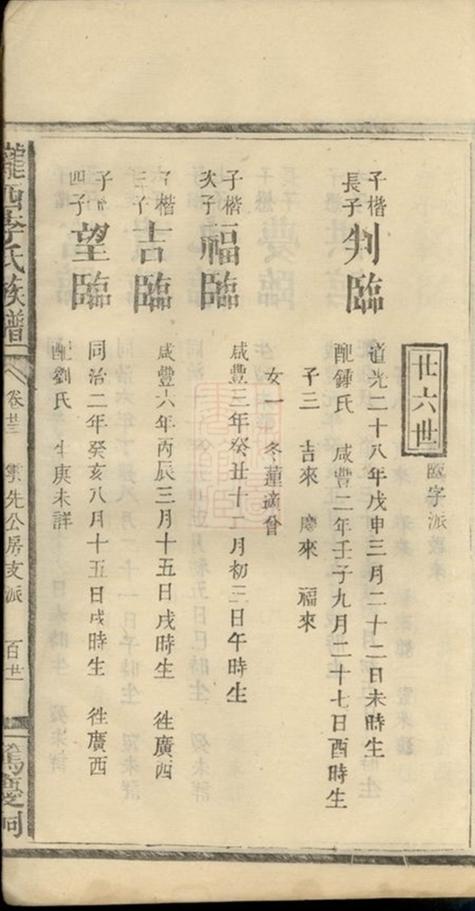 廿六世
臨字派
子楷長子
判臨
道光二十八年戊申三月二十二日未時生
配鍾氏 咸豐二年壬子九月二十七日酉時生
子三 吉來 慶來 福來
女一 冬蓮適曾
子楷次子
福臨
咸豐三年癸丑十二月初三日午時生
子楷三子
吉臨
咸豐六年丙辰三月十五日戌時生 徃廣西
子楷四子
望臨
同治二年癸亥八月十五日戌時生 徃廣西
配劉氏 生庚未詳
隴西李氏族譜
卷廿三 雲先公房支派 百廿
篤慶祠